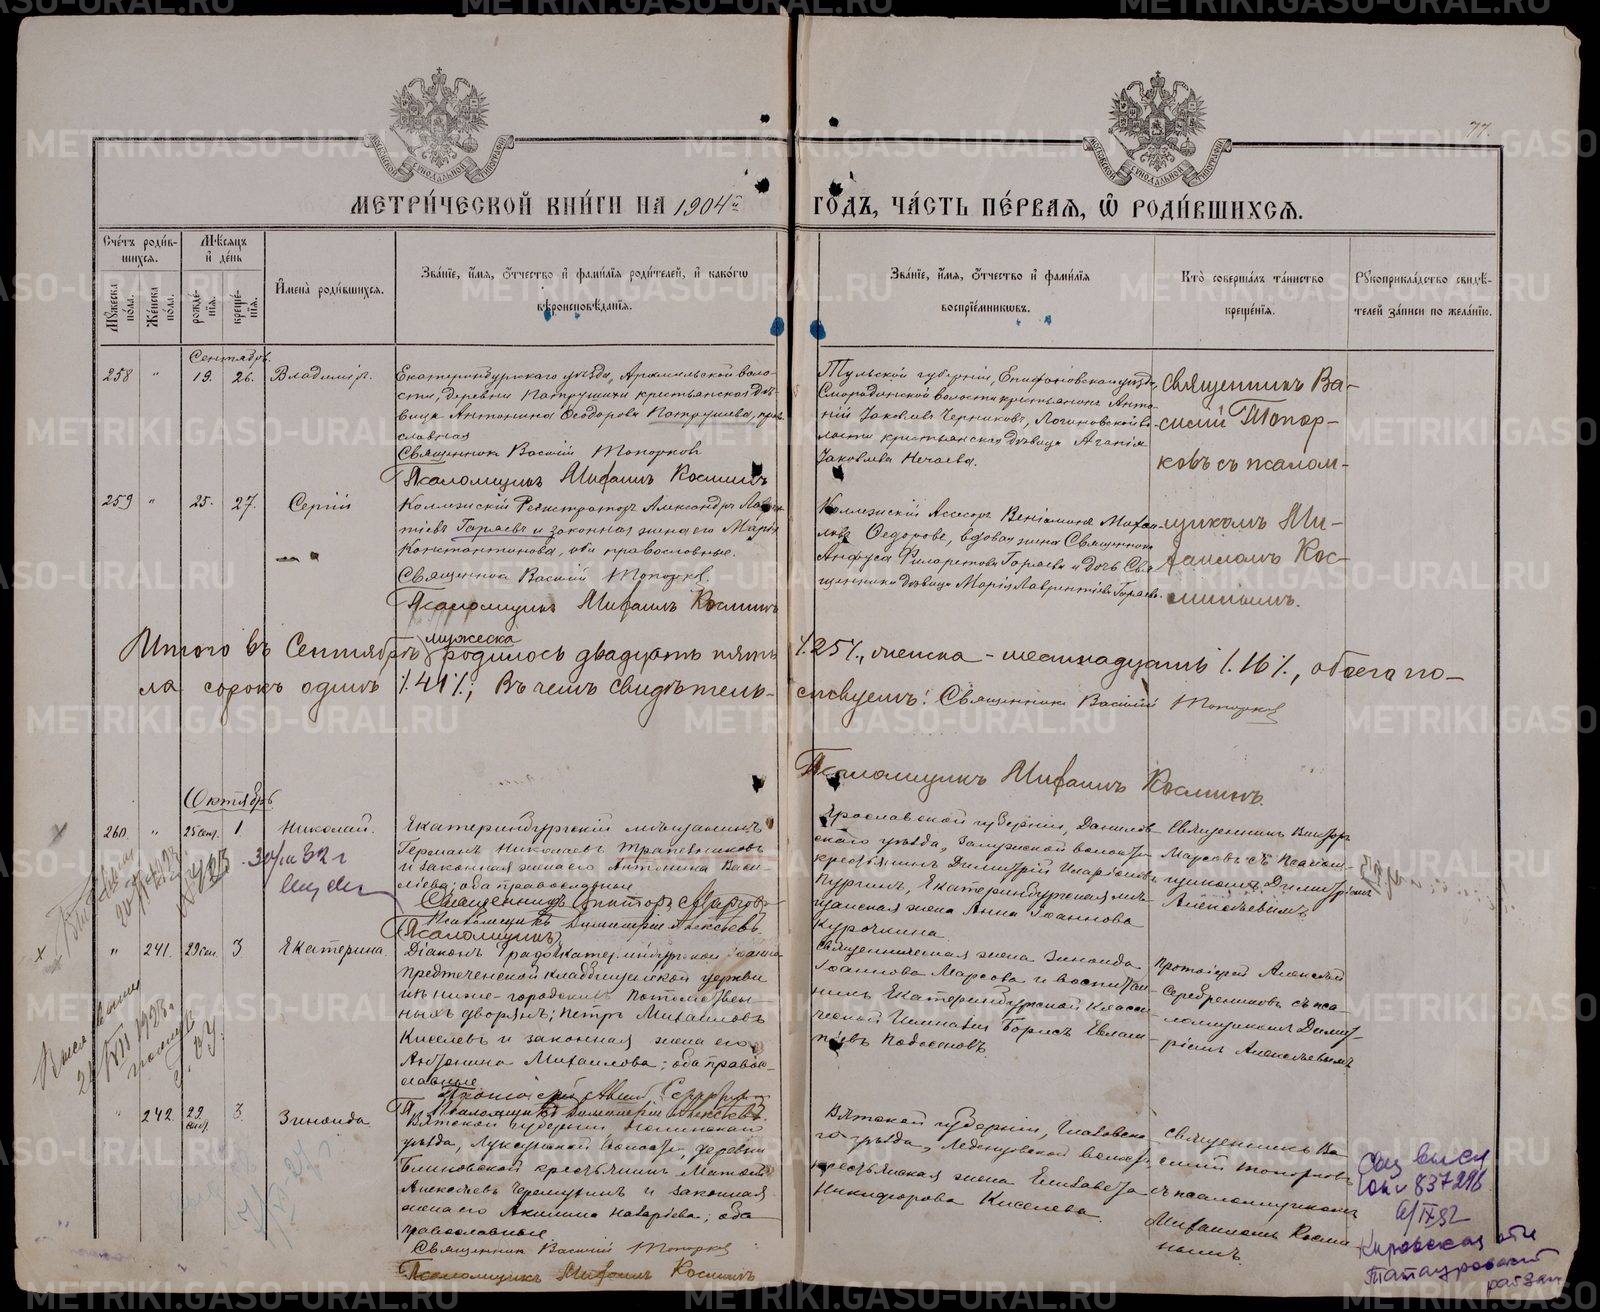 METRIKI.GASO-URAL.RU
77.
МЕТРИ́ЧЕСКОЙ КНИ́ГИ НА 1904й ГО́ДЪ, ЧА́СТЬ ПЕ́РВАЯ, Ѡ РОДИ́ВШИХСЯ.
Сче́тъ роди́вшихся.
Му́жеска по́ла.
Же́нска по́ла.
Мѣ́сяцъ и҆ де́нь
рожде́нїя.
креще́нїя.
И҆мена̀ роди́вшихся.
Зва́нїе, и҆́мя, ѻ҆́тчество и҆ фами́лїя роди́телей, и҆ како́гѡ
вѣроисповѣ́данїя.
Зва́нїе, и҆́мя, ѻ҆́тчество и҆ фами́лїя
воспрїе́мникѡвъ.
Кто̀ соверша́лъ та́инство
креще́нїя.
Рꙋкоприкла́дство свидѣ́-
телей за́писи по жела́нїю.
Сентябрь.
258 " 19. 26. Владиміръ.
Екатеринбургскаго уѣзда, Арамильской воло-
сти, деревни Патрушихи крестьянская дѣ-
вица Антонина Ѳеодорова Патрушева, пра-
вославная
Священникъ Василій Топорковъ
Псаломщикъ Михаилъ Косминъ
Тульской губерніи, Епифановскаго уѣзда,
волости крестьянинъ Анто-
ній Іаковлевъ Черниковъ, Логиновской во-
лости крестьянская дѣвица Агапія
Іаковлева Нечаева.
Священникъ Ва-
силій Топор-
ковъ съ псалом-
щикомъ Ми-
хаиломъ Кос-
минымъ.
259 " 25. 27. Сергій
Коллежскій Регистраторъ Александръ Лаврен-
тіевъ Гаряевъ и законная жена его Марія
Константинова, оба православные.
Священникъ Василій Топорковъ.
Псаломщикъ Михаилъ Косминъ
Коллежскій Ассесоръ Веніаминъ Михаи-
ловъ Ѳедоровъ, вдовая жена Священника
Анфуса Филаретова Гаряева и дочь Свя-
щенника дѣвица Марія Лаврентіева Гаряева.
Итого въ Сентябрѣ мужеска родилось двадцать пять /.25/., женска - шестнадцать /.16/., обоего по-
ла сорокъ одинъ /.41/.; Въ чемъ свидѣтель-ствуемъ: Священникъ Василій Топорковъ
Псаломщикъ Михаилъ Косминъ.
Октябрь
260. " 25 сент. 1 Николай.
Екатеринбургскій мѣщанинъ
Германъ Николаевъ Трапезниковъ
и законная жена его Антонина Васи-
лієва; оба православные
Священникъ Викторъ Марсовъ
Псаломщикъ Димитрій Алексѣевъ.
Псаломщикъ
Ярославской губерніи, Данилов-
скаго уѣзда, волости
крестьянинъ Димитрій Иларіоновъ
Пургинъ, Екатеринбургская мѣ-
щанская жена Анна Іоаннова
Курочкина.
Священникъ Викторъ
Марсовъ съ Псалом-
щикомъ Димитріемъ
Алексѣевымъ
" 241. 29 сен. 3 Екатерина.
Діаконъ Градо-Екатеринбургской Іоанно-
Предтеченской кладбищенской церкви
изъ ниже-городскихъ потомствен-
ныхъ дворянъ; Петръ Михаиловъ
Киселевъ и законная жена его
Антонина Михаилова; оба право-
славные
Псаломщикъ Димитрій Алексѣевъ.
Священническая жена Зинаида
Іоаннова Марсова и воспитан-
никъ Екатеринбургской класси-
ческой Гимназіи Борисъ Евлам-
піевъ Подосеновъ.
Протоіерей Алексѣй
Серебрениковъ съ пса-
ломщикомъ Димит-
ріемъ Алексѣевымъ
" 242. 22 сент. 3. Зинаида
Вятской губерніи Нолинскаго
уѣзда, волости, деревни
крестьянинъ Матвѣй
Алексѣевъ Черемухинъ и законная
жена его Акилина Назарьева; оба
православные
Священникъ Василій Топорковъ
Псаломщикъ Михаилъ Косминъ
Вятской губерніи, Глазовска-
го уѣзда, волости,
крестьянская жена Елизавета
Никифорова Киселева.
Священникъ Ва-
силій Топорковъ
съ псаломщикомъ
Михаиломъ Косми-
нымъ.
837296
Кировская обл